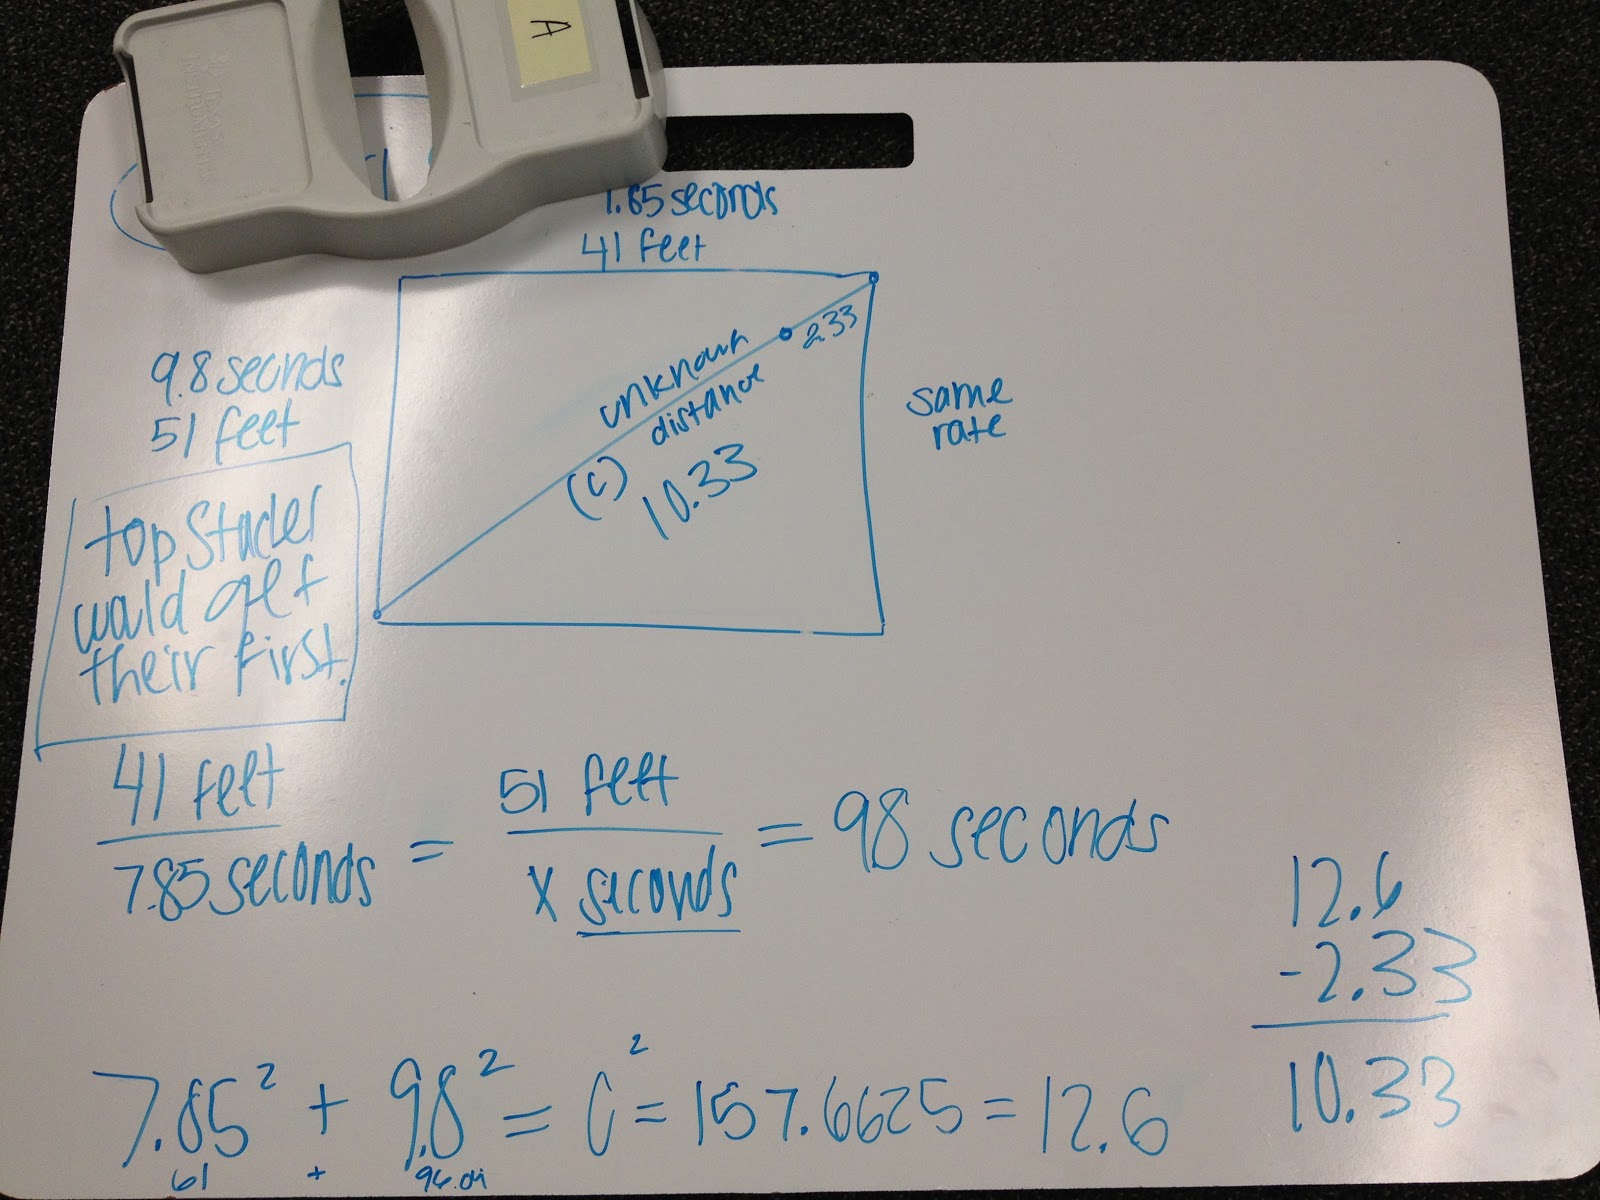 A
7.85 seconds
41 feet
2.33
unknown
distance
(c)
10.33
same
rate
9.8 seconds
51 feet
top Stacker
would get
their first.
41 feet / 7.85 seconds = 51 feet / x seconds = 98 seconds
12.6
-2.33
10.33
7.85² + 9.8² = C² = 157.6625 = 12.6
61 + 96.04